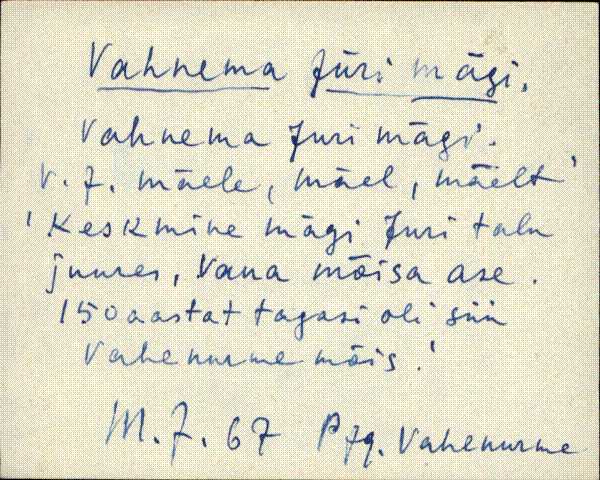 Vahnema Jüri mägi.
Vahnema Juri mägi.
V. J. mäele, mäel, mäelt'
'Keskmine mägi Juri talu
juures, Vana mõisa ase.
150 aastat tagasi oli siin
Vahenurme mõis.'
M. J. 67 PJg. Vahenurme